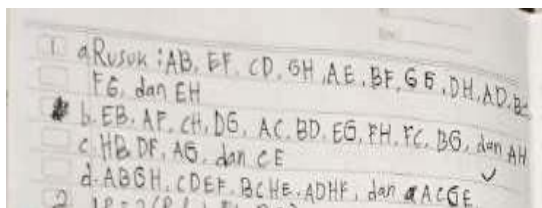 1. a. Rusuk : AB, EF, CD, GH, AE, BF, GC, DH, AD, BC
FG, dan EH
b. EB, AF, CH, DG, AC, BD, EG, FH, FC, BG, dan AH
c. HB, DF, AG, dan CE
d. ABGH, CDEF, BCHE, ADHF, dan ACGE
2.